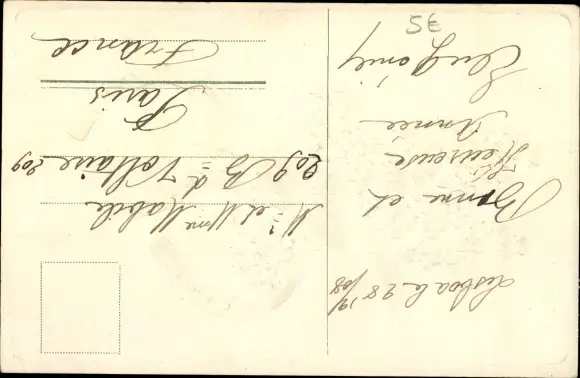 Lisboa le 28 12/08
Bonne et
Heureuse
Année
Eugénie
Mr et Mme Mabile
209 Bd Voltaire 209
Paris
France
5€